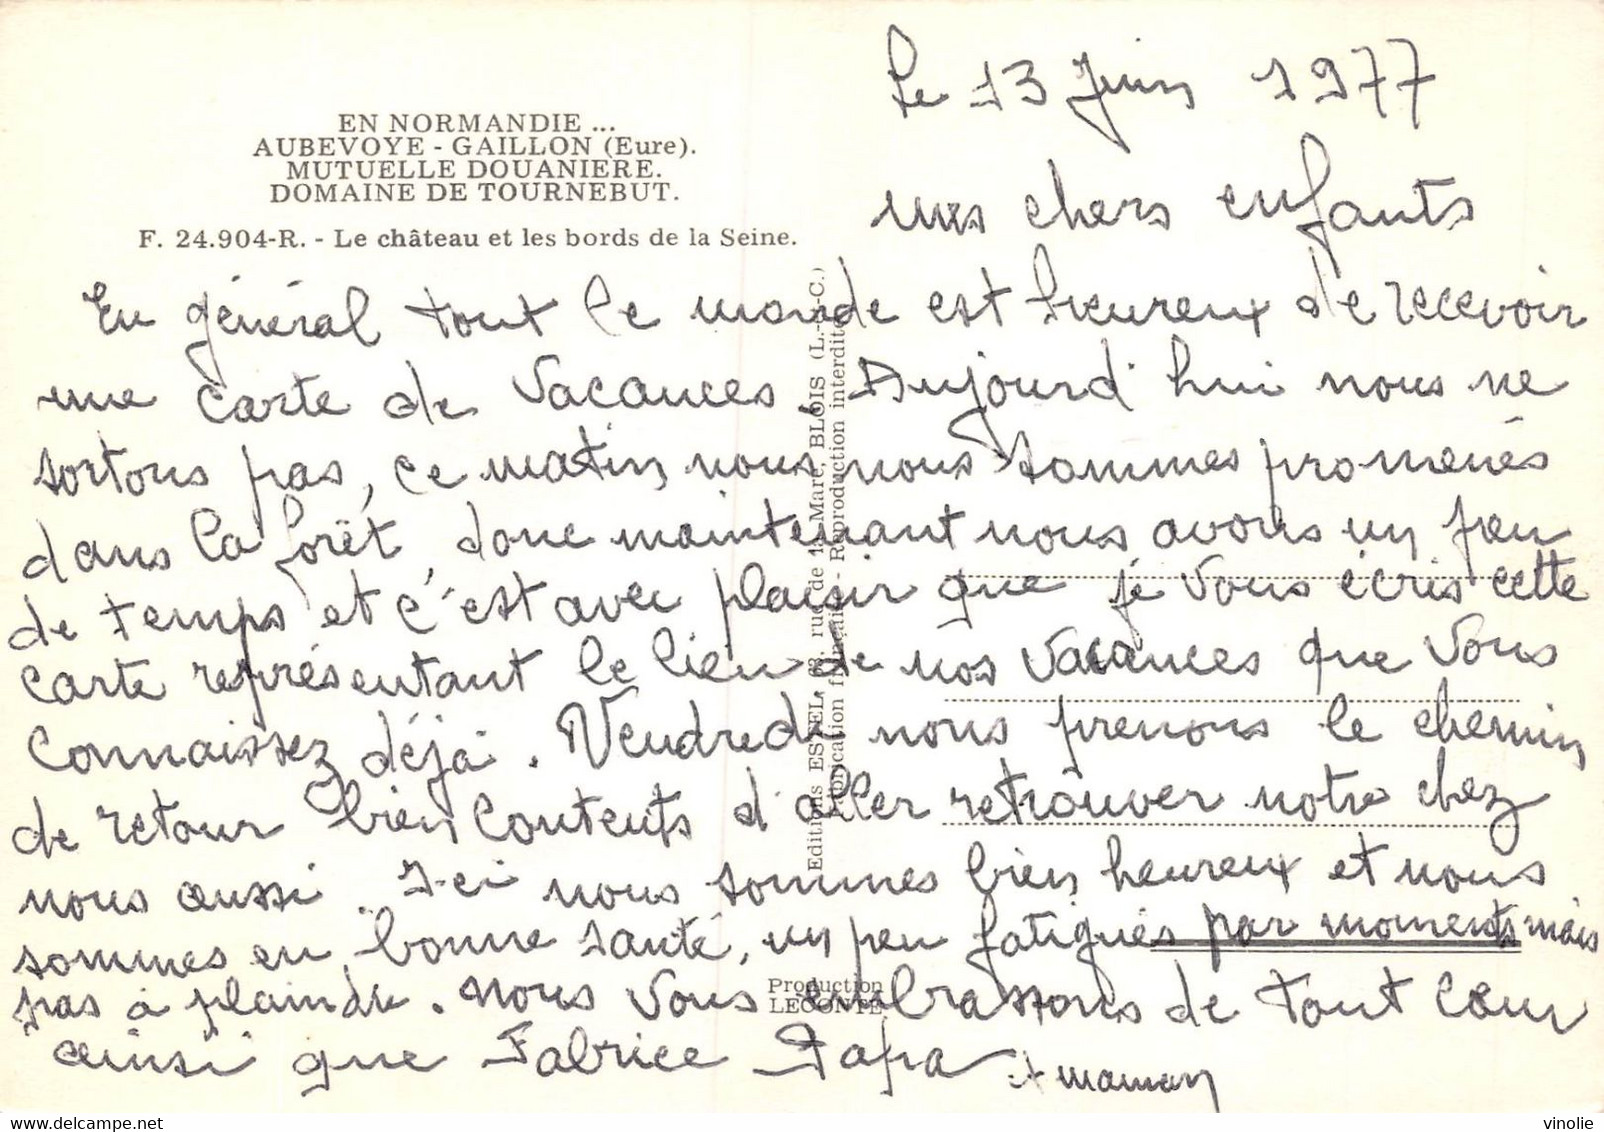 EN NORMANDIE ...
AUBEVOYE - GAILLON (Eure).
MUTUELLE DOUANIERE.
DOMAINE DE TOURNEBUT.
F. 24.904-R. - Le château et les bords de la Seine.
Le 13 Juin 1977
mes chers enfants
En général tout le monde est heureux de recevoir
une carte de vacances. Aujourd'hui nous ne
sortons pas, ce matin nous nous sommes promenés
dans la forêt, donc maintenant nous avons un peu
de temps et c'est avec plaisir que je vous écris cette
carte représentant le lieu de nos vacances que vous
connaissez déjà. Vendredi nous prenons le chemin
de retour bien contents d'aller retrouver notre chez
nous aussi. Ici nous sommes bien heureux et nous
sommes en bonne santé, un peu fatigués par moments mais
pas à plaindre. nous vous embrassons de tout coeur
ainsi que Fabrice Papa et maman
Editions ESTEL, rue de la Mare, BLOIS (L.-&-C.)
Fabrication française - Reproduction interdite
Production
LECONTE
vinolie